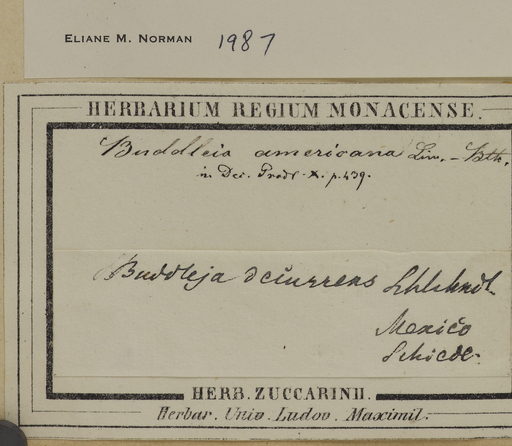 ELIANE M. NORMAN 1987
HERBARIUM REGIUM MONACENSE.
Buddleia americana Lin. – Bth.
in Dec. Prodr. X. p. 439.
Buddleja decurrens Schlchndl.
Mexico
Schiede.
HERB. ZUCCARINII.
Herbar. Univ. Ludov. Maximil.